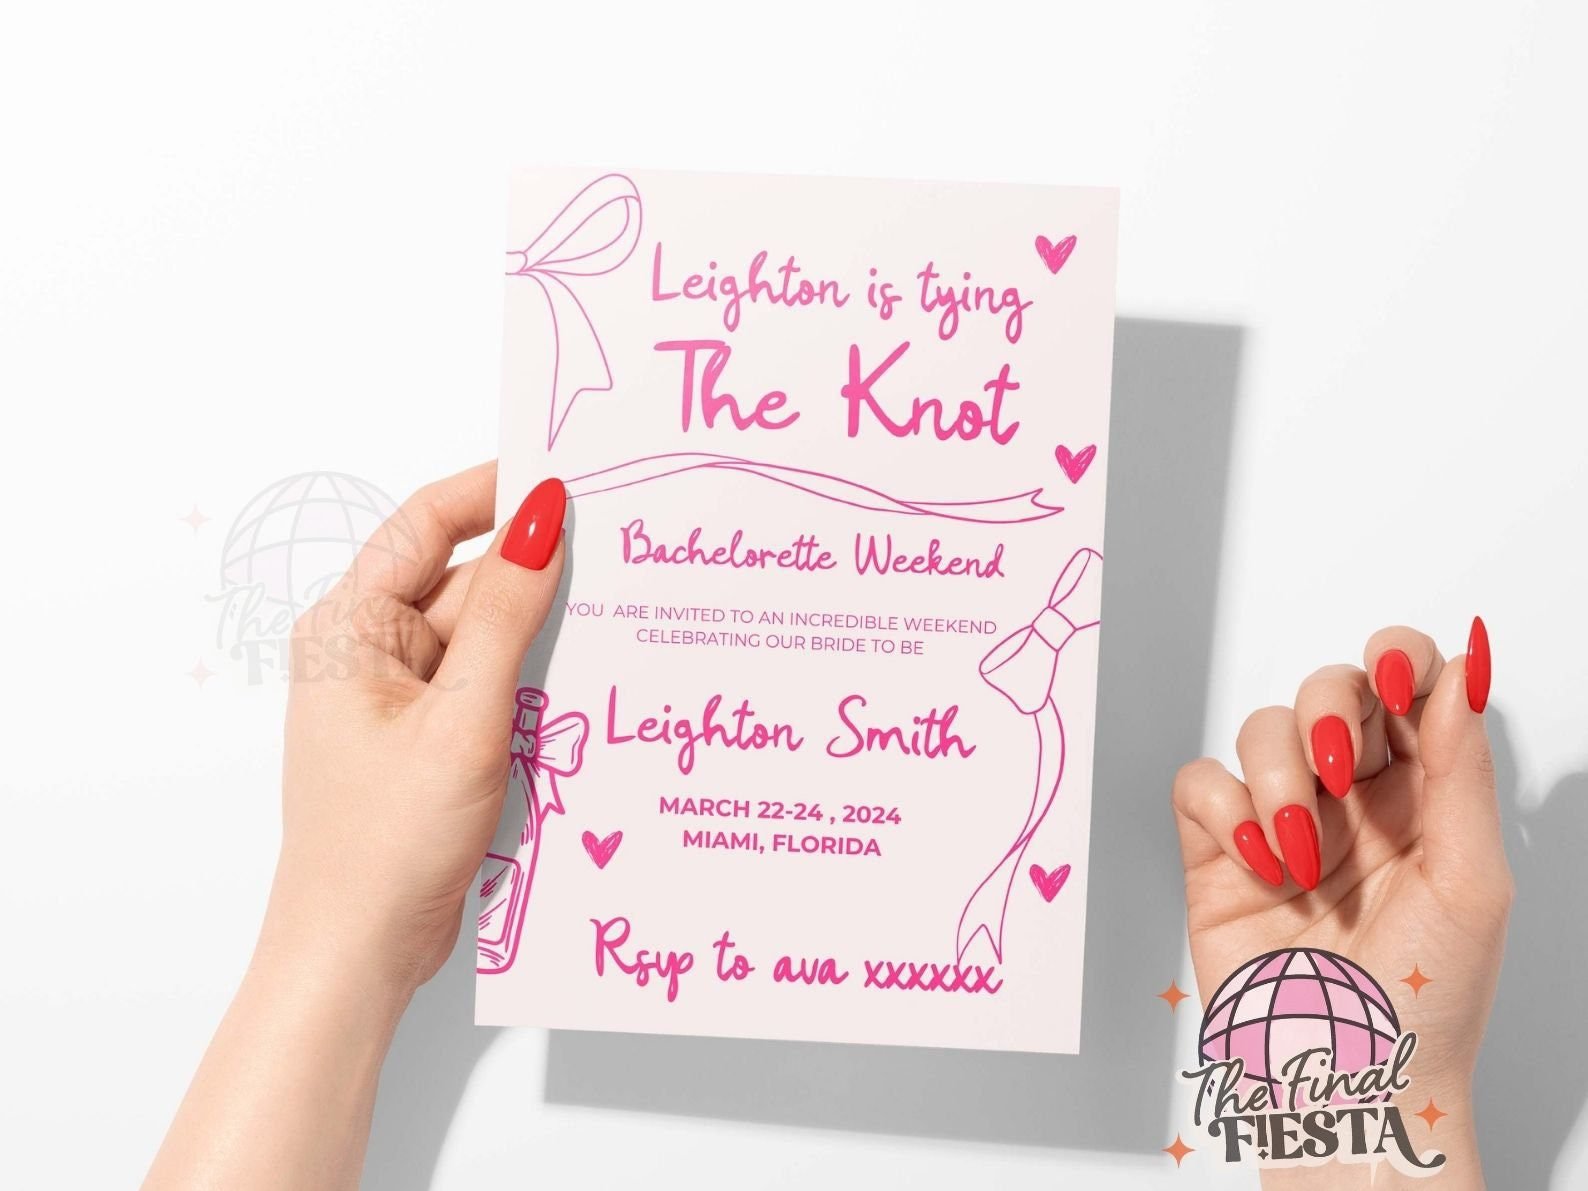 Leighton is tying
The Knot
Bachelorette Weekend
YOU ARE INVITED TO AN INCREDIBLE WEEKEND
CELEBRATING OUR BRIDE TO BE
Leighton Smith
MARCH 22-24 , 2024
MIAMI, FLORIDA
Rsvp to ava xxxxxx
The Final
FIESTA
The Final
FIESTA